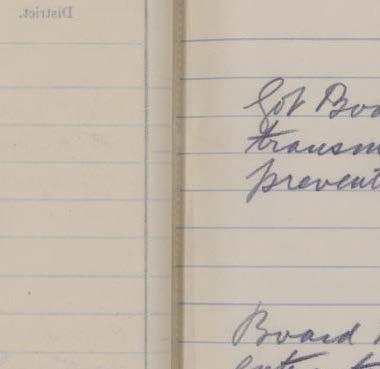 District.
Got Boa
transm
prevent
Board